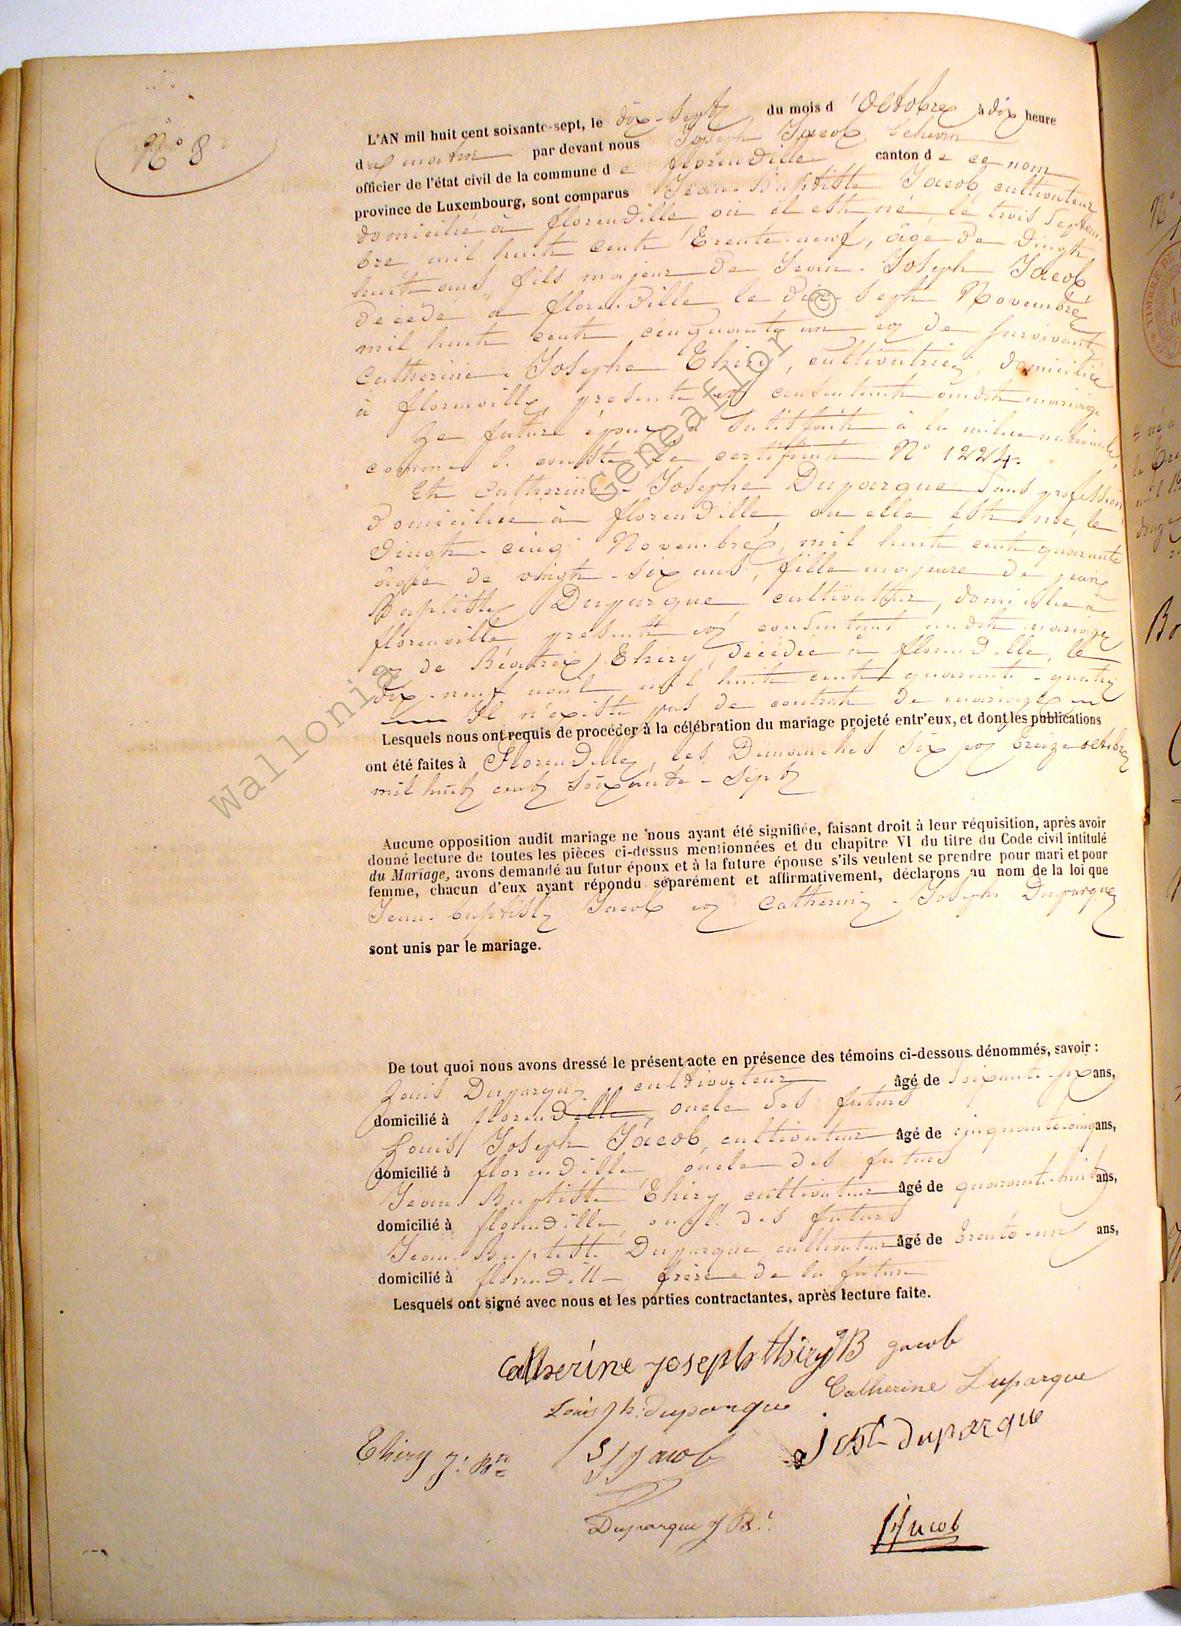 N° 8
L'AN mil huit cent soixante-sept, le dix-sept du mois d'Octobre à dix heure
du matin par devant nous Joseph Jacob Echevin
officier de l'état civil de la commune de florenville canton de ce nom
province de Luxembourg, sont comparus Jean-Baptiste Jacob, cultivateur
domicilié à florenville, où il est né, le trois Septem-
bre mil huit cent trente-neuf, âgé de vingt
huit ans, fils majeur de Jean-Joseph Jacob
décédé à florenville le dix-sept Novembre
mil huit cent cinquante un et de survivant
Catherine-Josephe Thiry, cultivatrice, domiciliée
à florenville, présente et consentante audit mariage
Le future époux a satisfait à la milice nationale,
comme le conste le certificat N° 1224.
Et Catherine-Josephe Duparque sans profession
domiciliée à florenville, où elle est née, le
vingt-cinq Novembre, mil huit cent quarante
âgée de vingt-six ans, fille majeure de jean
Baptiste Duparque, cultivateur, domicilié à
florenville présent et consentant audit mariage
et de Béatrix Thiry, décédée à florenville, le
dix-neuf avril mil huit cent quarante-quatre
Il n'existe pas de contrat de mariage
Lesquels nous ont requis de procéder à la célébration du mariage projeté entr'eux, et dont les publications
ont été faites à Florenville, les Dimanches six et treize octobre
mil huit cent soixante-sept
Aucune opposition audit mariage ne nous ayant été signifiée, faisant droit à leur réquisition, après avoir
donné lecture de toutes les pièces ci-dessus mentionnées et du chapitre VI du titre du Code civil intitulé
du Mariage, avons demandé au futur époux et à la future épouse s'ils veulent se prendre pour mari et pour
femme, chacun d'eux ayant répondu séparément et affirmativement, déclarons au nom de la loi que
Jean-baptiste Jacob et Catherine-Joseph Duparque
sont unis par le mariage.
De tout quoi nous avons dressé le présent acte en présence des témoins ci-dessous dénommés, savoir :
Louis Duparque, cultivateur âgé de soixante-six ans,
domicilié à florenville, oncle des futurs
Louis Joseph Jacob, cultivateur âgé de cinquante cinq ans,
domicilié à florenville, oncle des futurs
Jean Baptiste Thiry, cultivateur âgé de quarante-huit ans,
domicilié à florenville, oncle des futurs
Jean-Baptiste Duparque, cultivateur âgé de trente-un ans,
domicilié à florenville frère de la future
Lesquels ont signé avec nous et les parties contractantes, après lecture faite.
Catherine joseph thiry JB jacob
Louis Jh. duparque Catherine Duparque
Thiry J: Bte Jacob duparque
Duparque J Bt.
Jacob
Wallonia Geneaflor ©